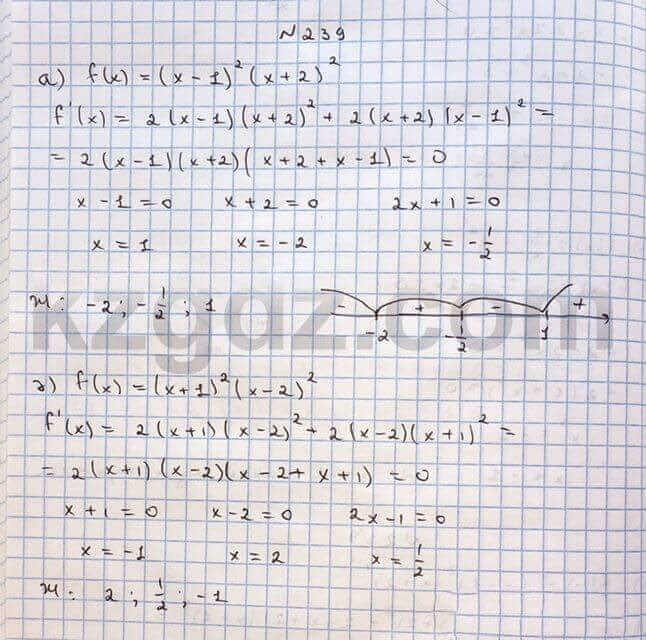 N 239
а) f(x) = (x – 1)² (x + 2)²
f'(x) = 2 (x – 1) (x + 2)² + 2 (x + 2) (x – 1)² =
= 2 (x – 1) (x + 2) ( x + 2 + x – 1) = 0
x – 1 = 0 x + 2 = 0 2x + 1 = 0
x = 1 x = – 2 x = – 1/2
ж: – 2 ; – 1/2 ; 1
– + – +
–2 –1/2 1
kzgdz.com
г) f(x) = (x + 1)² (x – 2)²
f'(x) = 2 (x + 1) (x – 2)² + 2 (x – 2) (x + 1)² =
= 2 (x + 1) (x – 2) (x – 2 + x + 1) = 0
x + 1 = 0 x – 2 = 0 2x – 1 = 0
x = –1 x = 2 x = 1/2
ж: 2 ; 1/2 ; – 1